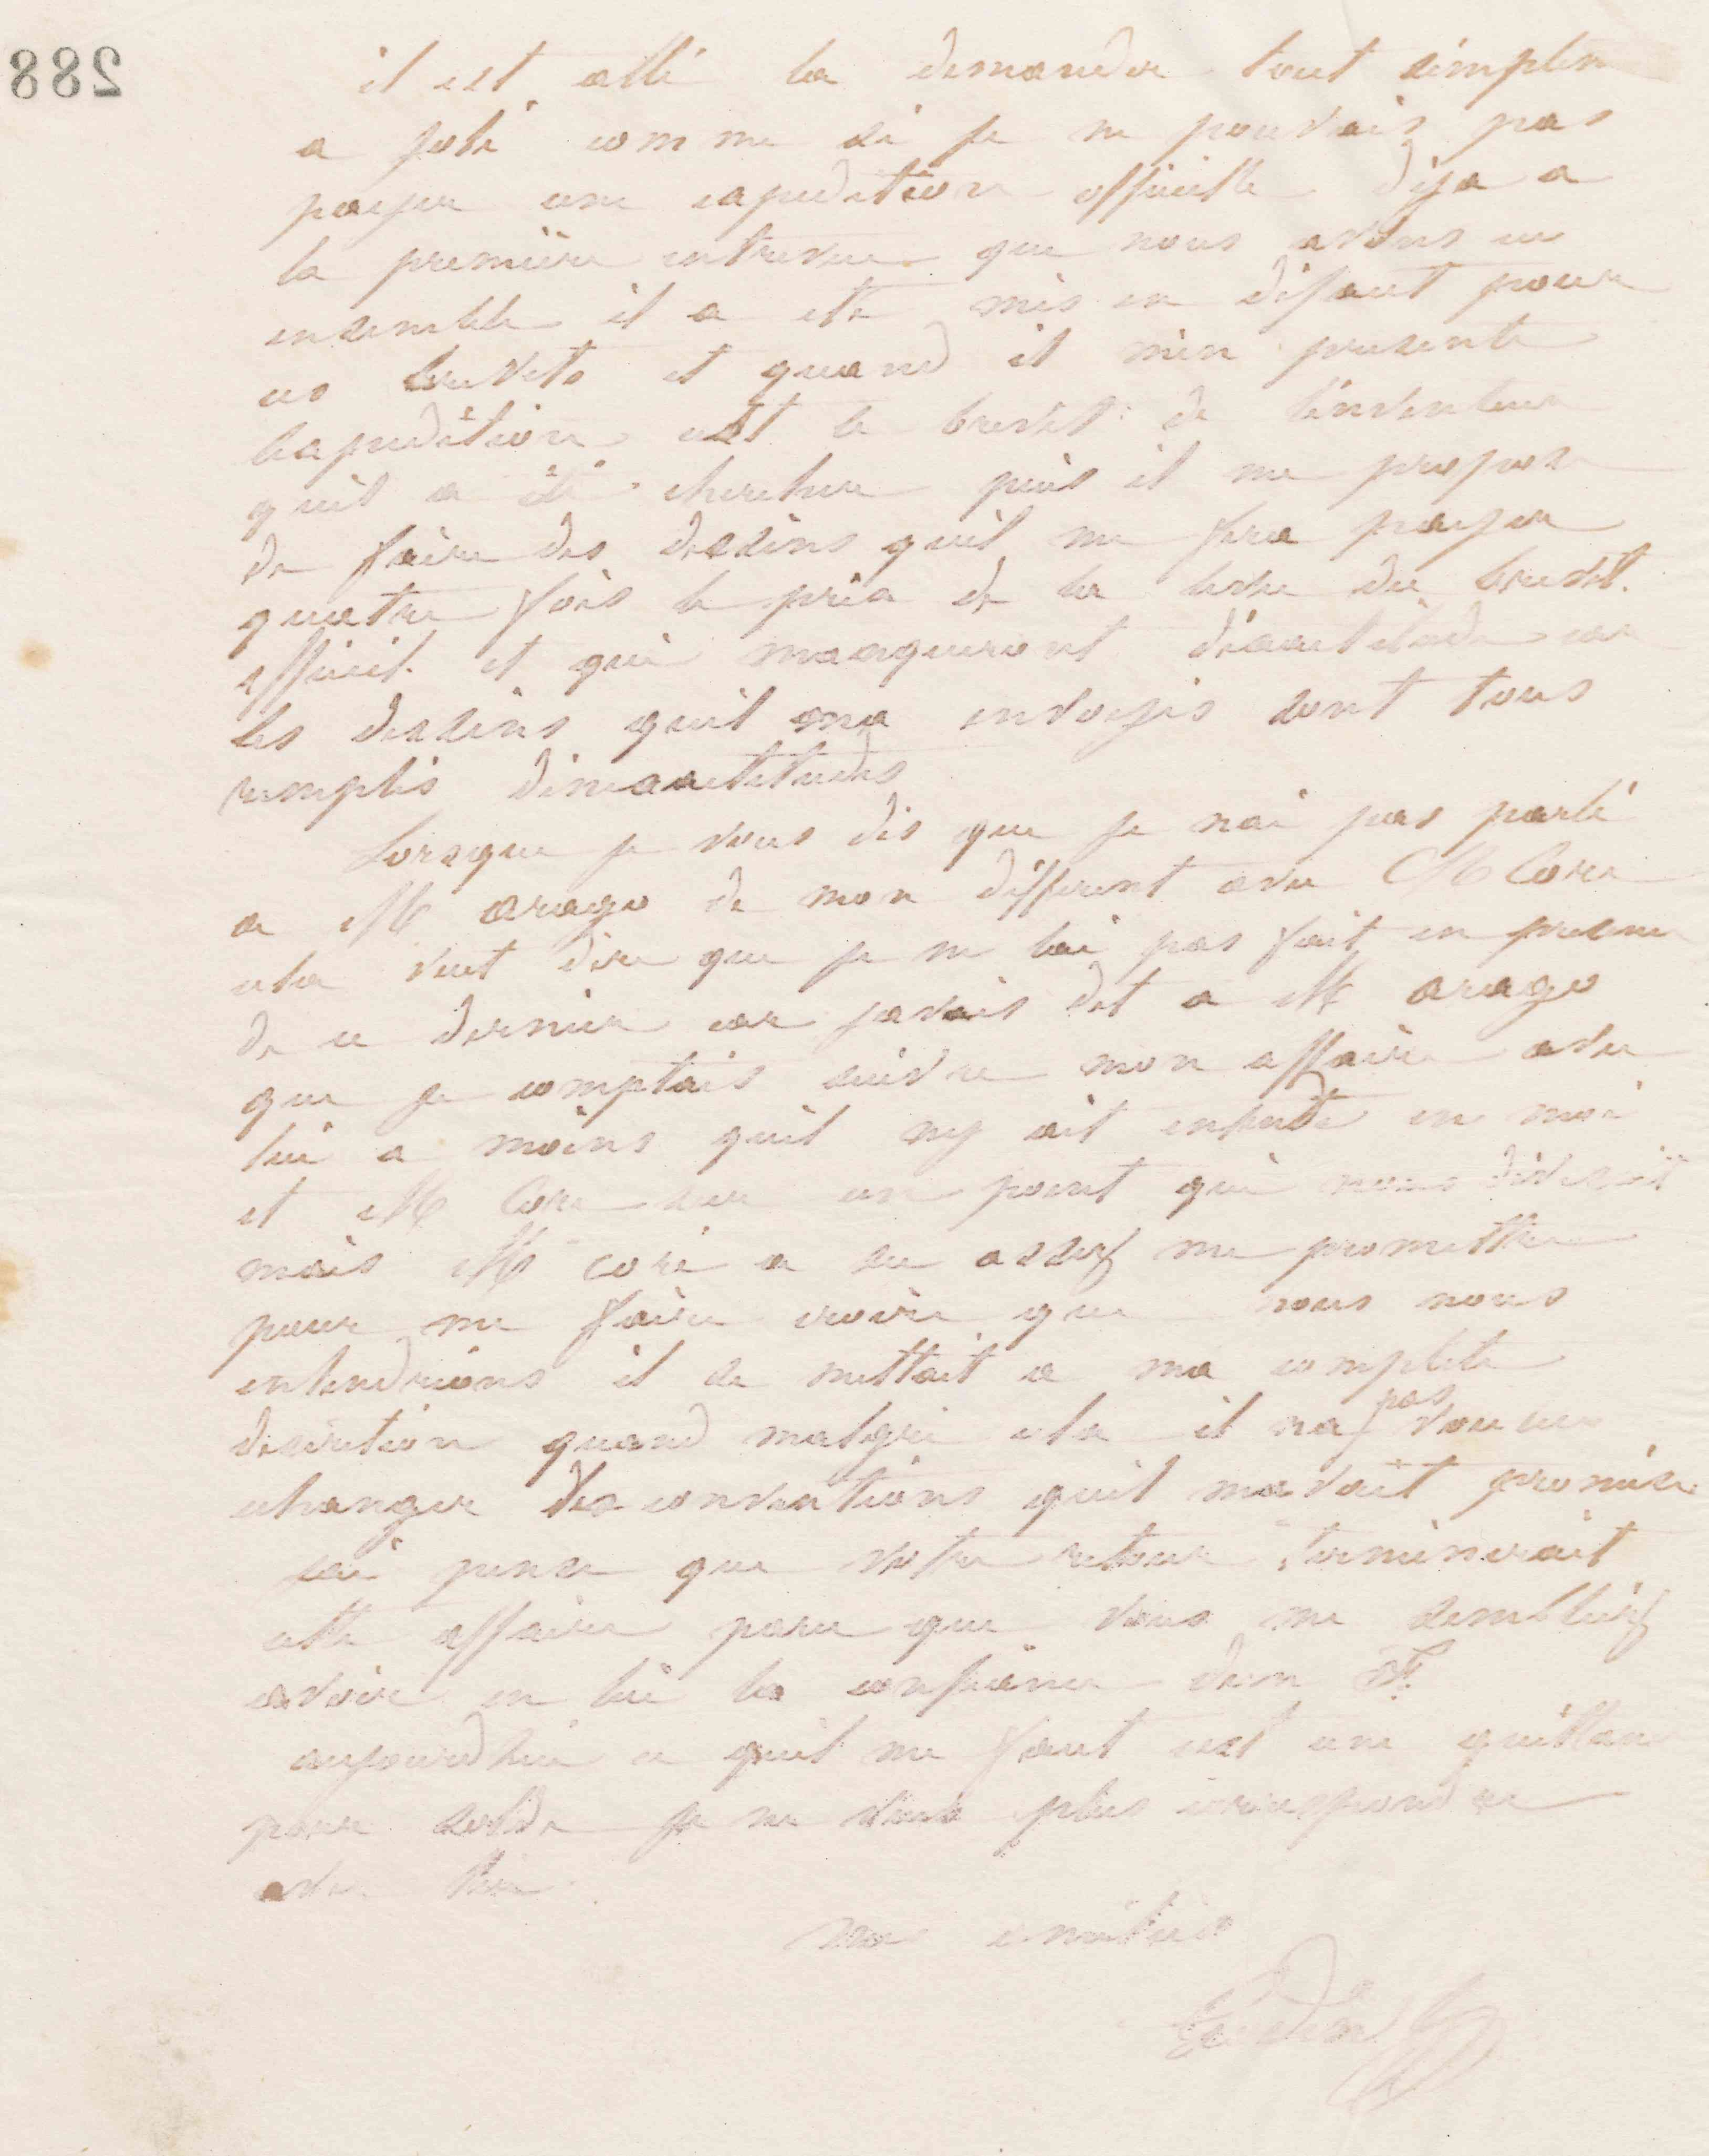 288
il est allé la demander tout simplem
a jobé comme si je ne pouvais pas
payer une expedition officielle deja a
la première entrevue que nous avons eu
ensemble il a ete mis en defaut pour
ces brevets et quand il m'en presente
lexpedition cest le brevet de linventeur
quil a été chercher puis il me propose
de faire des dessins quil me fera payer
quatre fois le prix de la levée du brevet
officiel et qui manqueront dexactitude car
les dessins quil ma envoyés sont tous
remplis dinexactitudes
Lorsque je vous dis que je nai pas parlé
a M arago de mon different avec M Coré
cela veut dire que je ne lai pas fait en presence
de ce dernier car javais dit a M arago
que je comptais suivre mon affaire avec
lui a moins quil ny ait entente en moi
et M Coré sur un point qui nous divisait
mais M coré a su assez me promettre
pour me faire croire que nous nous
entendrions il se mettait a ma complete
discretion quand malgré cela il na pas voulu
changer des conventions quil mavait promise
jai pense que votre retour terminerait
cette affaire parce que vous me sembliez
avoir en lui la confiance dun F.
aujourdhui ce quil me faut cest une quittance
pour solde je ne veux plus correspondre
avec lui
mes amitiés